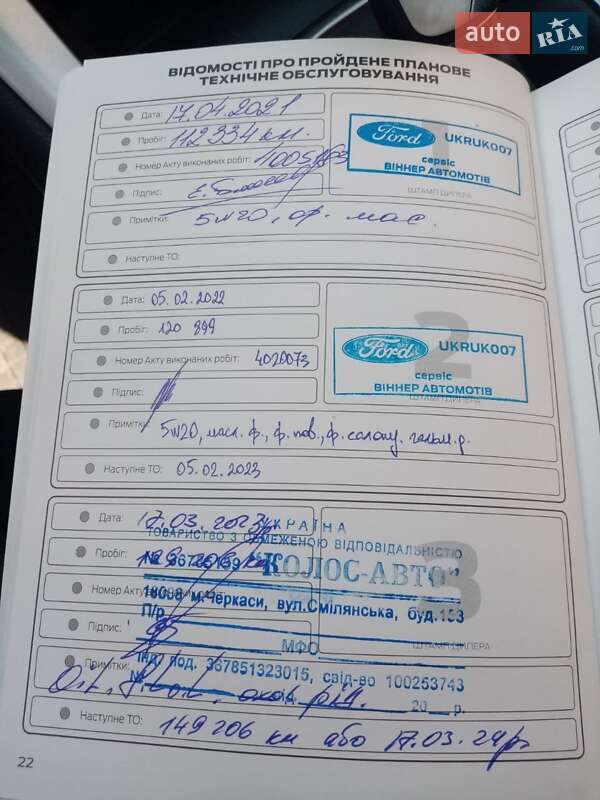 auto RIA .com
ВІДОМОСТІ ПРО ПРОЙДЕНЕ ПЛАНОВЕ
ТЕХНІЧНЕ ОБСЛУГОВУВАННЯ
Дата: 17.04.2021
Пробіг: 112334 км.
Номер Акту виконаних робіт:
Підпис:
Примітки: 5w20, ор. мас.
Наступне ТО:
1
Ford UKRUK007
сервіс
ВІННЕР АВТОМОТІВ
ШТАМП ДИЛЕРА
Дата: 05.02.2022
Пробіг: 120 899
Номер Акту виконаних робіт: 4020073
Підпис:
Примітки: 5w20, масл. ф., ф. пов., ф. салону.
Наступне ТО: 05.02.2023
2
Ford UKRUK007
сервіс
ВІННЕР АВТОМОТІВ
ШТАМП ДИЛЕРА
Дата: 17.03.2023
Пробіг:
Номер Акту
Підпис:
Примітки:
Наступне ТО: 149 206 км або 17.03.24р
3
УКРАЇНА
ТОВАРИСТВО З ОБМЕЖЕНОЮ ВІДПОВІДАЛЬНІСТЮ
"КОЛОС-АВТО"
м.Черкаси, вул.Смілянська, буд.
П/р
МФО
ШТАМП ДИЛЕРА
Інд. код. 367851323015, свід-во 100253743
№ 20 р.
22